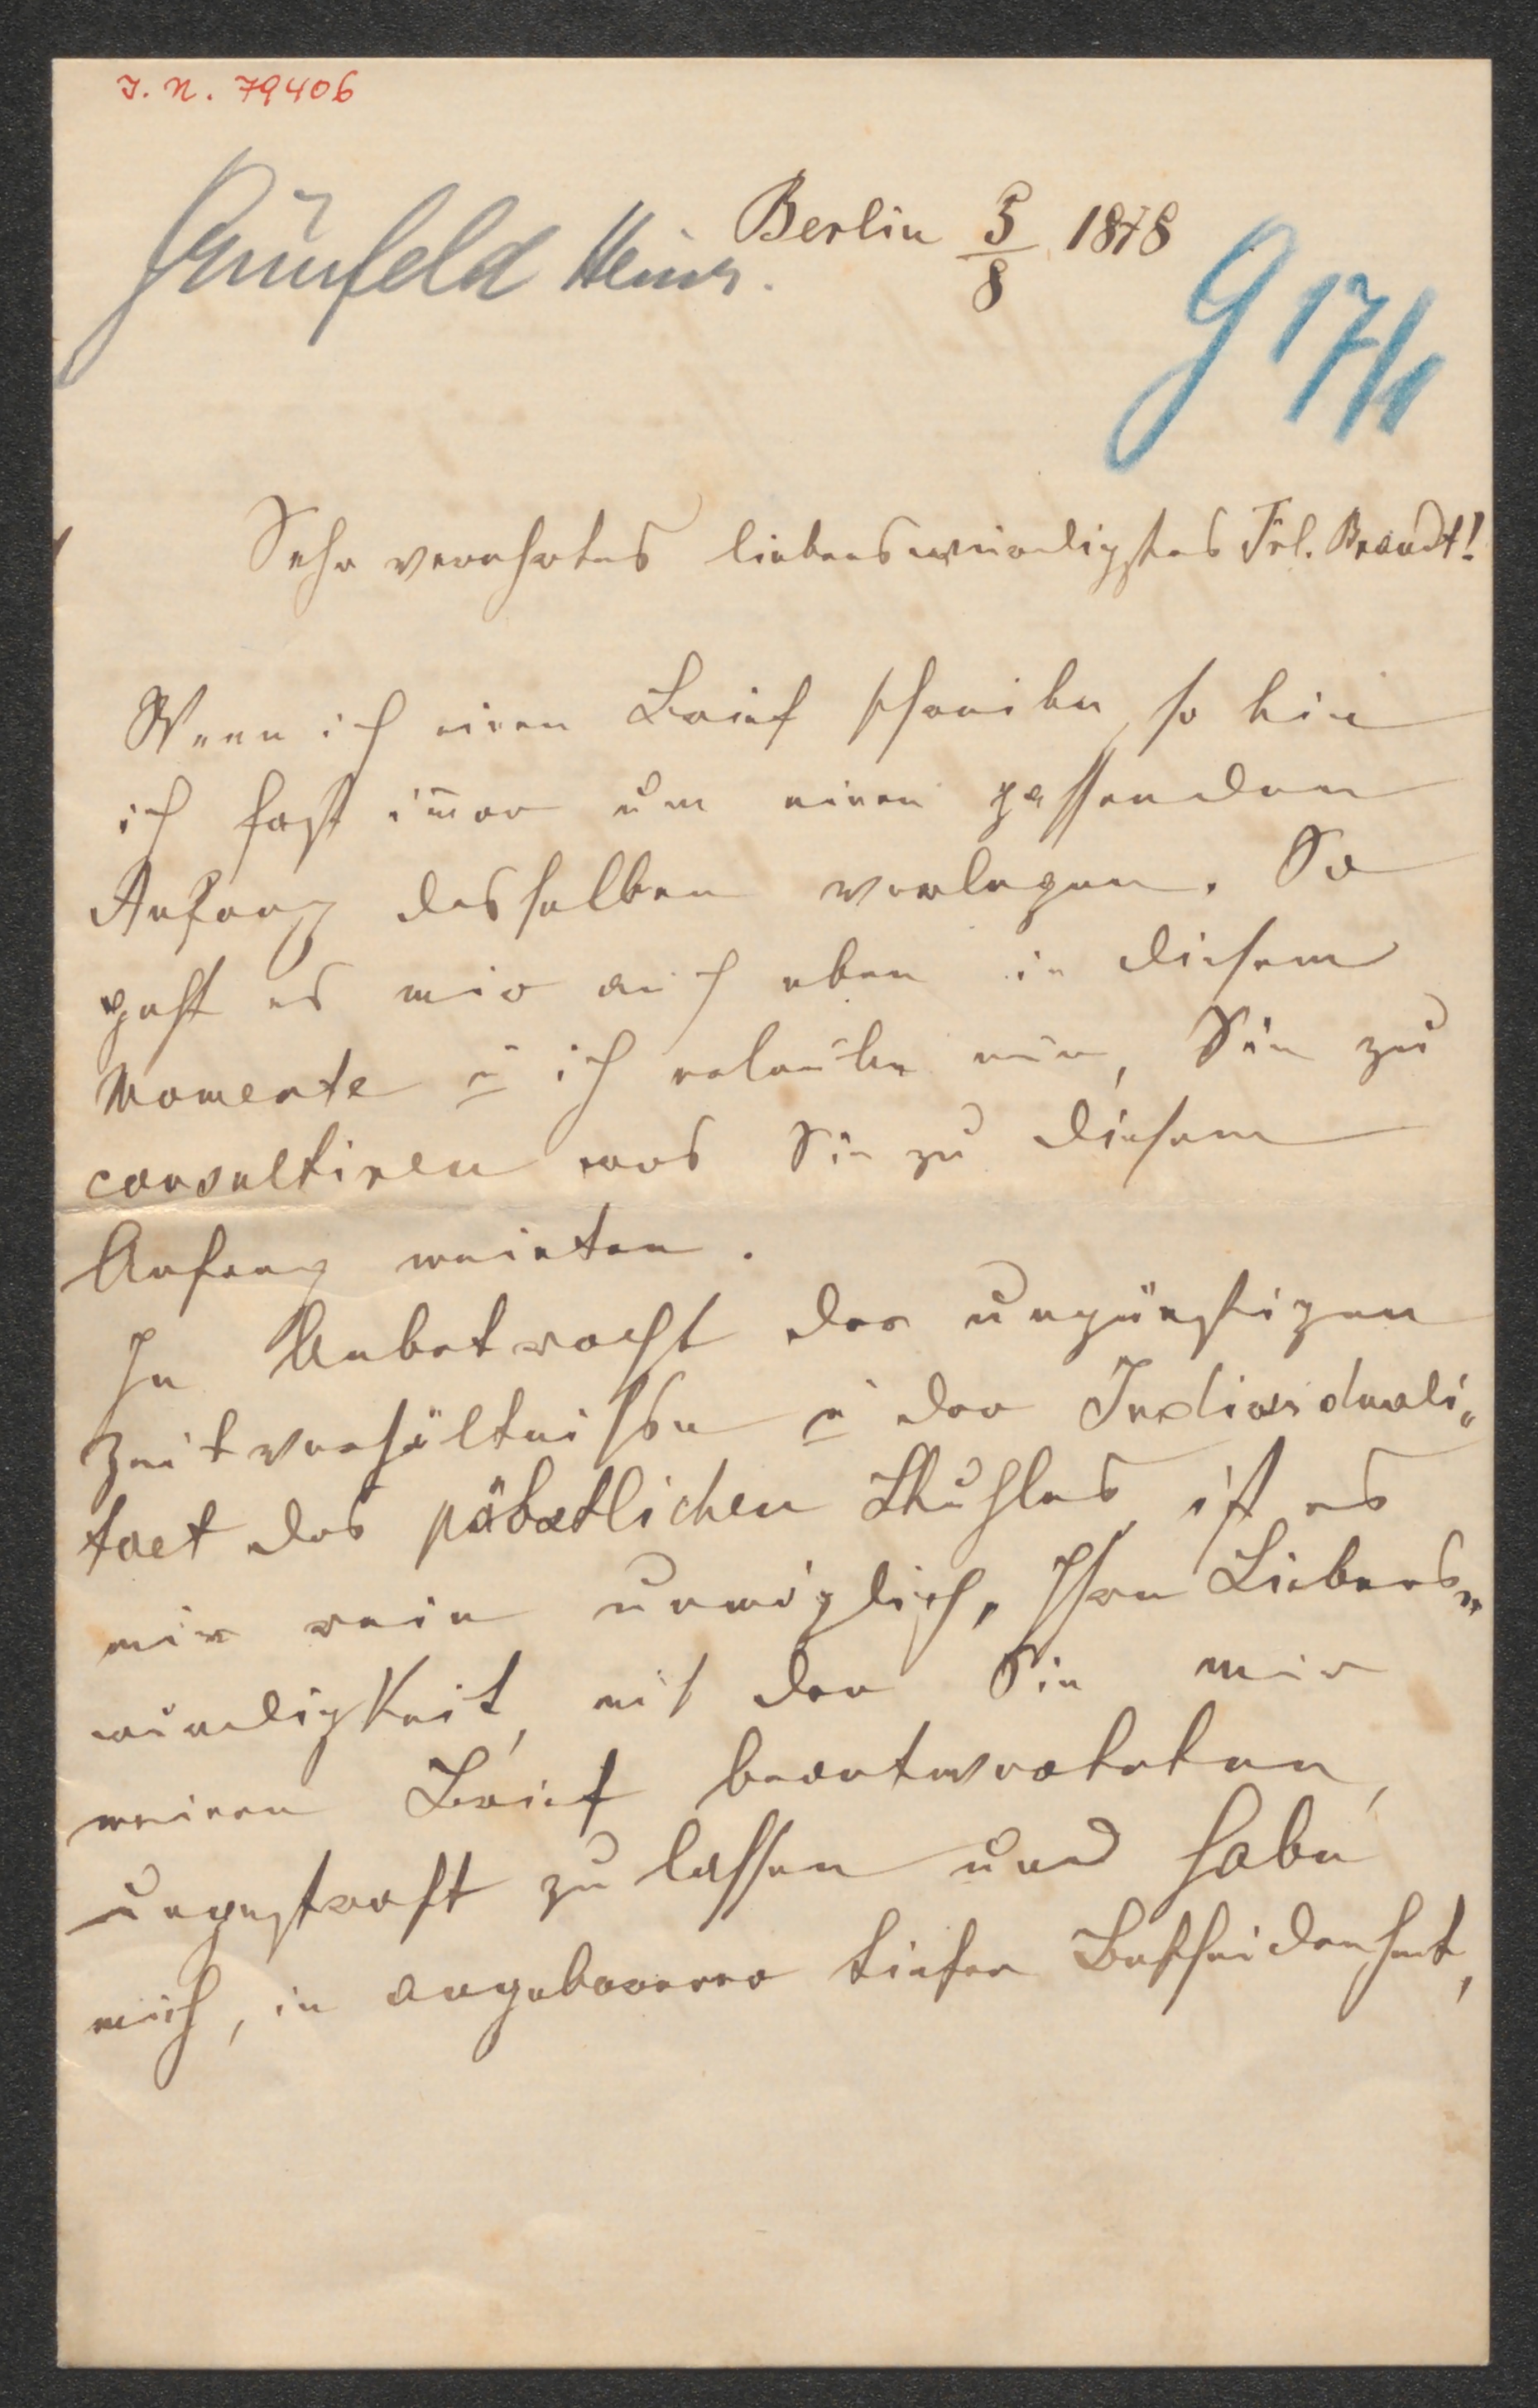 I. N. 79406
Grünfeld Heinr.
Berlin 5/8 1878
G 17/1
Sehr verehrtes liebenswürdigstes Frl. Brandt!
Wenn ich einen Brief schreibe, so bin
ich fast im̄er um einen passenden
Anfang desselben verlegen. So
geht es mir auch eben in diesem
Momente u ich erlaube mir, Sie zu
consultiren was Sie zu diesem
Anfang meinten.
In Anbetracht der ungünstigen
Zeitverhältnisse u der Individuali„
taet des päbstlichen Stuhles, ist es
mir rein unmöglich, Ihre Liebens„
würdigkeit, mit der Sie mir
meinen Brief beantworteten,
ungestraft zu lassen und habe
mich, in angeborener tiefer Bescheidenheit,